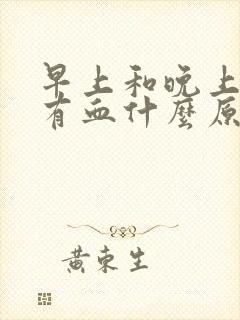 早上和晚上
有血什麼原
黄東生